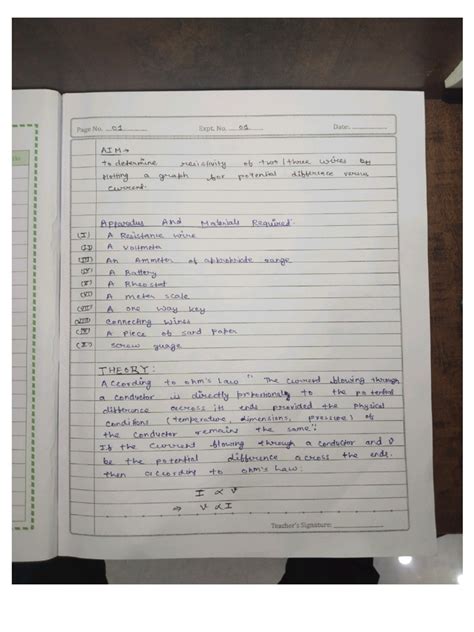 Page No. 01 Expt. No. 01 Date:
AIM →
to determine resistivity of two/three wires by
plotting a graph for potential difference versus
current.
Apparatus And Materials Required.
(I) A Resistance wire
(II) A voltmeter
(III) An Ammeter of appropriate range
(IV) A Battery
(V) A Rheostat
(VI) A meter scale
(VII) A one way key
(VIII) connecting wires
(IX) A piece of sand paper
(X) screw guage
THEORY:
According to ohm's Law " The current flowing through
a conductor is directly proportional to the potential
difference across its ends provided the physical
conditions (temperature, dimensions, pressure) of
the conductor remains the same".
If the current flowing through a conductor and V
be the potential difference across the ends.
then according to ohm's Law:
I ∝ V
⇒ V ∝ I
Teacher's Signature: